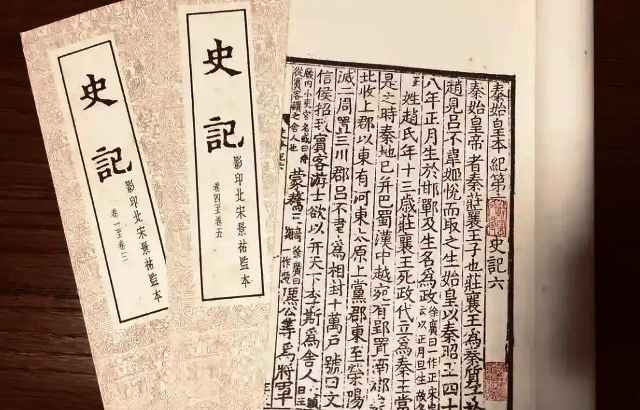 史記
影印北宋景祐監本
卷一至卷三
史記
影印北宋景祐監本
卷四至卷五
秦始皇本紀第 史記六
秦始皇帝者秦莊襄王子也莊襄王為秦質子
趙見呂不韋姬悅而取之生始皇以秦昭王四十
八年正月生於邯鄲及生名為政
姓趙氏年十三歲莊襄王死政代立為秦王當
是之時秦地已并巴蜀漢中越宛有郢置南郡
北收上郡以東有河東太原上黨郡東至滎陽
滅二周置三川郡呂不韋為相封十萬戶號曰文
信侯招致賓客游士欲以并天下李斯為舍人
從賓客謂之舍人也
蒙驁 公等為將軍